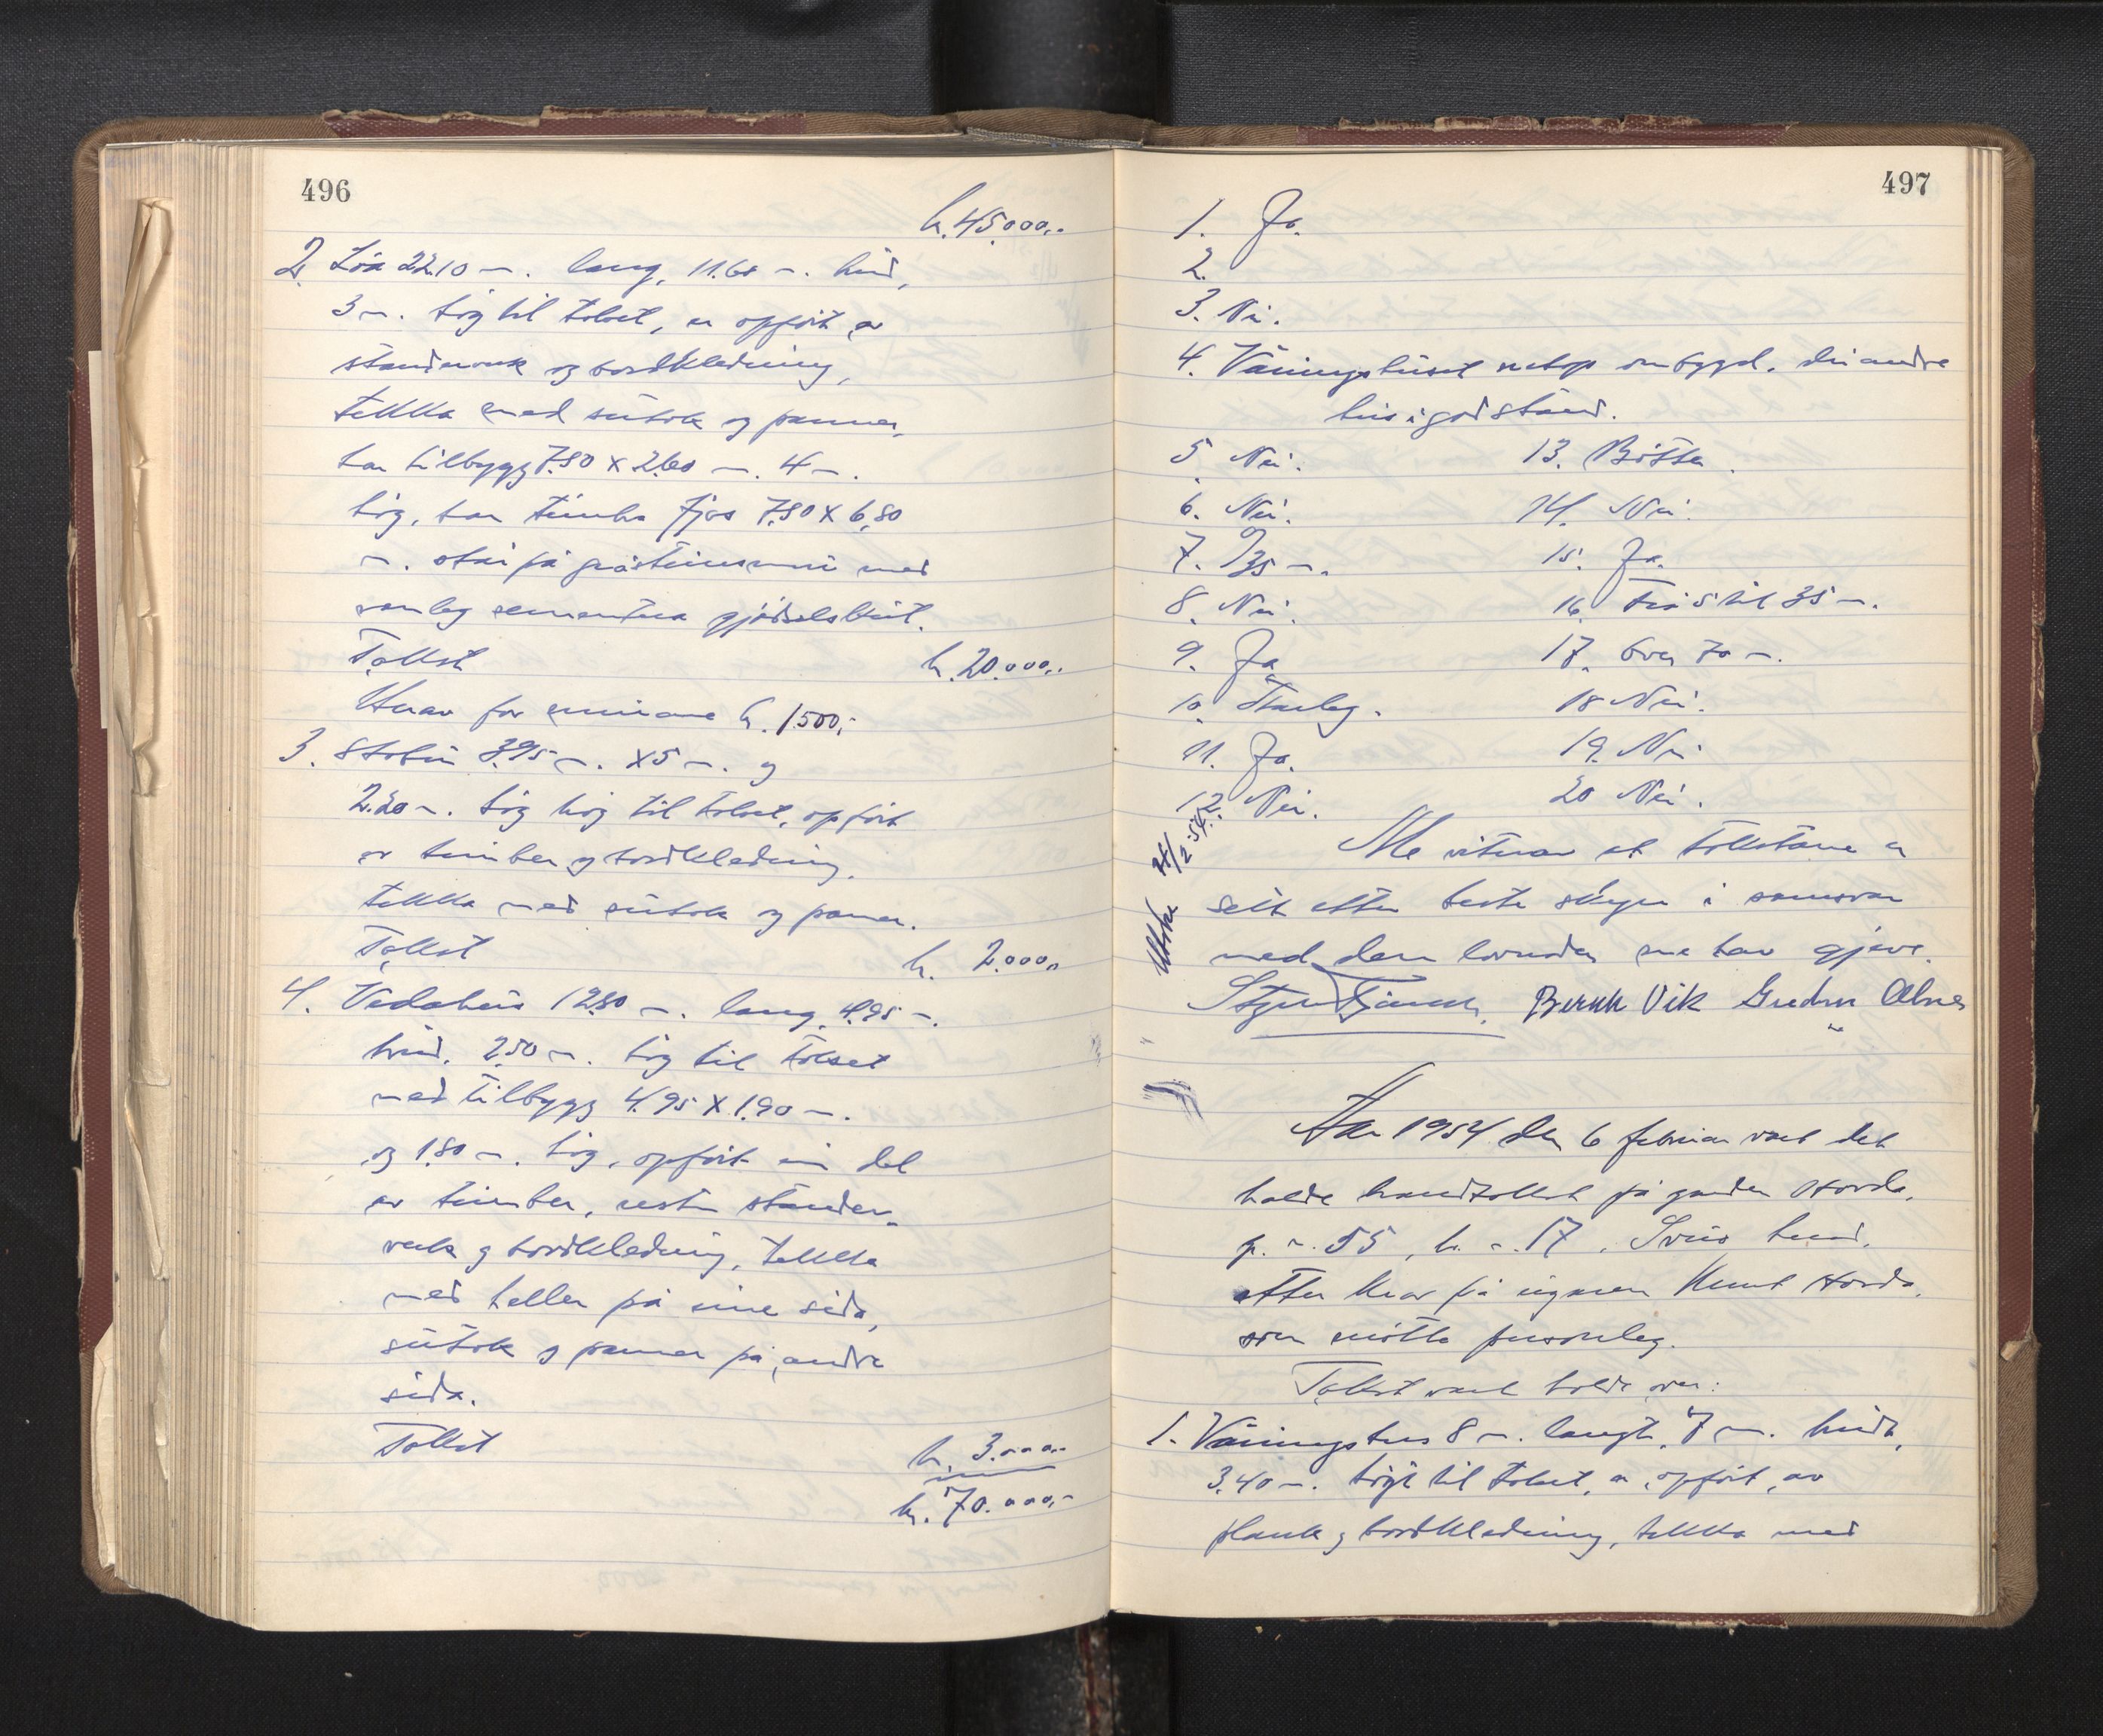 496
kr. 45.000,-
2. Löa 22.10 m. lang, 11.60 m. breid,
3 m. høg til taket, er oppført av
standerverk og bordkledning,
tekka med sutak og panner,
har tilbygg 7.80 x 2.60 m. 4 m.
høg, har timbra fjøs 7.80 x 6.80
m. står på gråsteinsmur med
vanleg sementera gjødselskist.
Takst kr. 20.000,-
Herav for murane kr. 1500,-
3. Stabur 3.95 m. x 5 m. og
2.20 m. høg høg til taket, oppført
av timber og bordkledning.
tekka med sutak og panner.
Takst kr. 2.000,-
4. Vedahus 12.80 m. lang, 4.95 m.
breid, 2.50 m. høg til taket
med tilbygg 4.95 x 1.90 m.
og 1.80 m. høg, oppført ein del
av timber, resten stander-
verk og bordkledning, tekka
med heller på eine sida,
sutak og panner på andre
sida.
Takst kr. 3.000,-
kr. 70.000,-
497
1. Ja.
2.
3. Nei.
4. Våningshuset netop ombygd. dei andre
hus i god stand.
5. Nei. 13. Bøtter.
6. Nei. 14. Nei.
7. 35 m. 15. Ja.
8. Nei. 16. Frå 5 til 35 m.
9. Ja. 17. Over 70 m.
10. Truleg. 18 Nei.
11. Ja. 19. Nei
12. Nei. 20 Nei.
Me vitnar at takstane er
sett etter beste skjøn i samsvar
med den lovnaden me har gjeve.
Bernh Vik Gudm Alne
Utskr. 2 54
Aar 1954 den 6 februar vart det
halde brandtakst på garden Hovda,
g. nr. 55, br. nr. 17, Sveio herad,
etter krav frå eigaren Knut Hovda,
som møtte personleg.
Takst vart halde over:
1. Våningshus 8 m. langt, 7 m. breidt,
3.40 m. høgt til taket, er oppført av
plank og bordkledning, tekka med